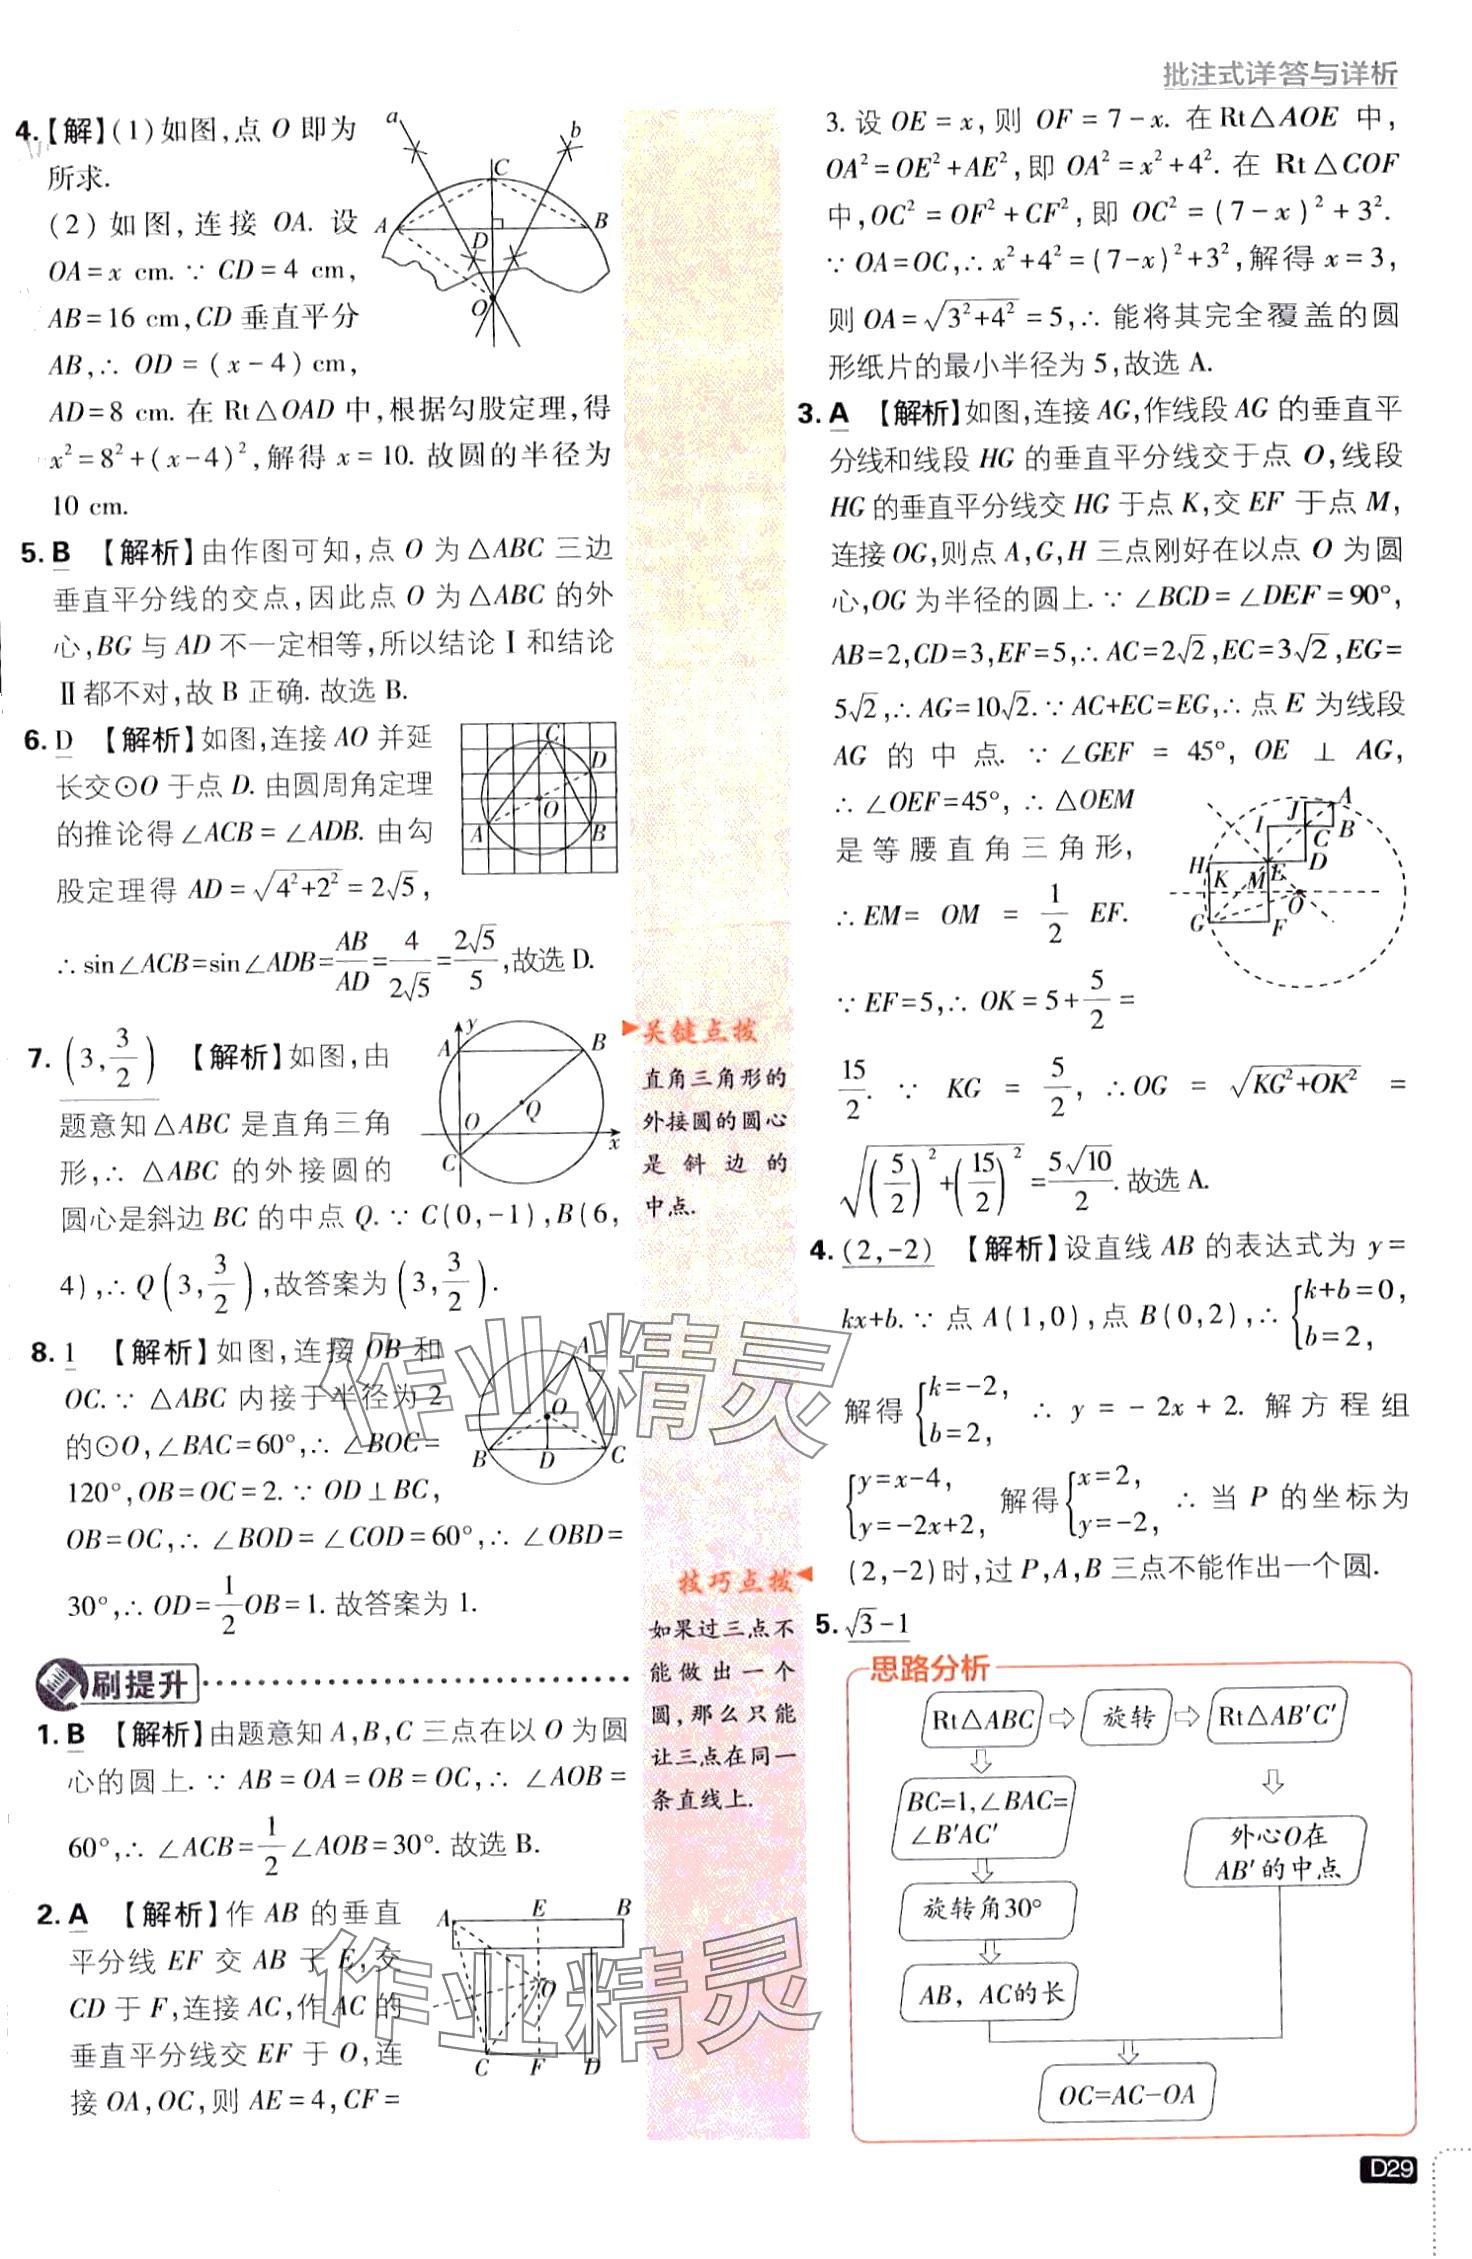 批注式详答与详析
4.【解】(1)如图,点 O 即为
所求.
(2)如图,连接 OA. 设
OA=x cm. ∵ CD=4 cm,
AB=16 cm,CD 垂直平分
AB,∴ OD=(x-4)cm,
AD=8 cm. 在 Rt△OAD 中,根据勾股定理,得
x²=8²+(x-4)²,解得 x=10. 故圆的半径为
10 cm.
a
b
C
A
B
D
O
5. B 【解析】由作图可知,点 O 为△ABC 三边
垂直平分线的交点,因此点 O 为△ABC 的外
心,BG 与 AD 不一定相等,所以结论Ⅰ和结论
Ⅱ都不对,故 B 正确. 故选 B.
6. D 【解析】如图,连接 AO 并延
长交⊙O 于点 D. 由圆周角定理
的推论得∠ACB=∠ADB. 由勾
股定理得 AD=√(4²+2²)=2√5,
∴ sin∠ACB=sin∠ADB=AB/AD=4/(2√5)=2√5/5,故选 D.
C
D
O
A
B
7. (3, 3/2) 【解析】如图,由
题意知△ABC 是直角三角
形,∴ △ABC 的外接圆的
圆心是斜边 BC 的中点 Q. ∵ C(0,-1),B(6,
4),∴ Q(3, 3/2),故答案为(3, 3/2).
y
A
B
Q
O
x
C
8. 1 【解析】如图,连接 OB 和
OC. ∵ △ABC 内接于半径为 2
的⊙O,∠BAC=60°,∴ ∠BOC=
120°,OB=OC=2. ∵ OD⊥BC,
OB=OC,∴ ∠BOD=∠COD=60°,∴ ∠OBD=
30°,∴ OD=1/2 OB=1. 故答案为 1.
A
O
B
D
C
刷提升
1. B 【解析】由题意知 A,B,C 三点在以 O 为圆
心的圆上. ∵ AB=OA=OB=OC,∴ ∠AOB=
60°,∴ ∠ACB=1/2∠AOB=30°. 故选 B.
2. A 【解析】作 AB 的垂直
平分线 EF 交 AB 于 E,交
CD 于 F,连接 AC,作 AC 的
垂直平分线交 EF 于 O,连
接 OA,OC,则 AE=4,CF=
A
E
B
O
C
F
D
关键点拨
直角三角形的
外接圆的圆心
是斜边的
中点.
技巧点拨
如果过三点不
能做出一个
圆,那么只能
让三点在同一
条直线上.
3. 设 OE=x,则 OF=7-x. 在 Rt△AOE 中,
OA²=OE²+AE²,即 OA²=x²+4². 在 Rt△COF
中,OC²=OF²+CF²,即 OC²=(7-x)²+3².
∵ OA=OC,∴ x²+4²=(7-x)²+3²,解得 x=3,
则 OA=√(3²+4²)=5,∴ 能将其完全覆盖的圆
形纸片的最小半径为 5,故选 A.
3. A 【解析】如图,连接 AG,作线段 AG 的垂直平
分线和线段 HG 的垂直平分线交于点 O,线段
HG 的垂直平分线交 HG 于点 K,交 EF 于点 M,
连接 OG,则点 A,G,H 三点刚好在以点 O 为圆
心,OG 为半径的圆上. ∵ ∠BCD=∠DEF=90°,
AB=2,CD=3,EF=5,∴ AC=2√2,EC=3√2,EG=
5√2,∴ AG=10√2. ∵ AC+EC=EG,∴ 点 E 为线段
AG 的中点. ∵ ∠GEF=45°,OE⊥AG,
∴ ∠OEF=45°,∴ △OEM
是等腰直角三角形,
∴ EM=OM=1/2 EF.
∵ EF=5,∴ OK=5+5/2=
15/2. ∵ KG=5/2,∴ OG=√(KG²+OK²)=
√((5/2)²+(15/2)²)=5√10/2. 故选 A.
J
A
I
B
C
H
E
D
K
M
O
G
F
4. (2,-2) 【解析】设直线 AB 的表达式为 y=
kx+b. ∵ 点 A(1,0),点 B(0,2),∴ {k+b=0, b=2,
解得{k=-2, b=2, ∴ y=-2x+2. 解方程组
{y=x-4, y=-2x+2, 解得{x=2, y=-2, ∴ 当 P 的坐标为
(2,-2)时,过 P,A,B 三点不能作出一个圆.
5. √3-1
思路分析
Rt△ABC
旋转
Rt△AB′C′
BC=1,∠BAC=
∠B′AC′
外心O在
AB′的中点
旋转角30°
AB,AC的长
OC=AC-OA
D29
作业精灵
作业精灵